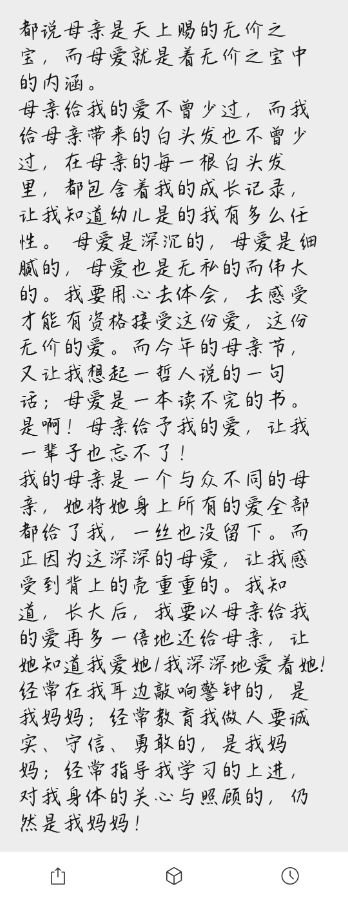 都说母亲是天上赐的无价之
宝，而母爱就是着无价之宝中
的内涵。
母亲给我的爱不曾少过，而我
给母亲带来的白头发也不曾少
过，在母亲的每一根白头发
里，都包含着我的成长记录，
让我知道幼儿是的我有多么任
性。 母爱是深沉的，母爱是细
腻的，母爱也是无私的而伟大
的。我要用心去体会，去感受
才能有资格接受这份爱，这份
无价的爱。而今年的母亲节，
又让我想起一哲人说的一句
话；母爱是一本读不完的书。
是啊！母亲给予我的爱，让我
一辈子也忘不了！
我的母亲是一个与众不同的母
亲，她将她身上所有的爱全部
都给了我，一丝也没留下。而
正因为这深深的母爱，让我感
受到背上的壳重重的。我知
道，长大后，我要以母亲给我
的爱再多一倍地还给母亲，让
她知道我爱她/我深深地爱着她!
经常在我耳边敲响警钟的，是
我妈妈；经常教育我做人要诚
实、守信、勇敢的，是我妈
妈；经常指导我学习的上进，
对我身体的关心与照顾的，仍
然是我妈妈！